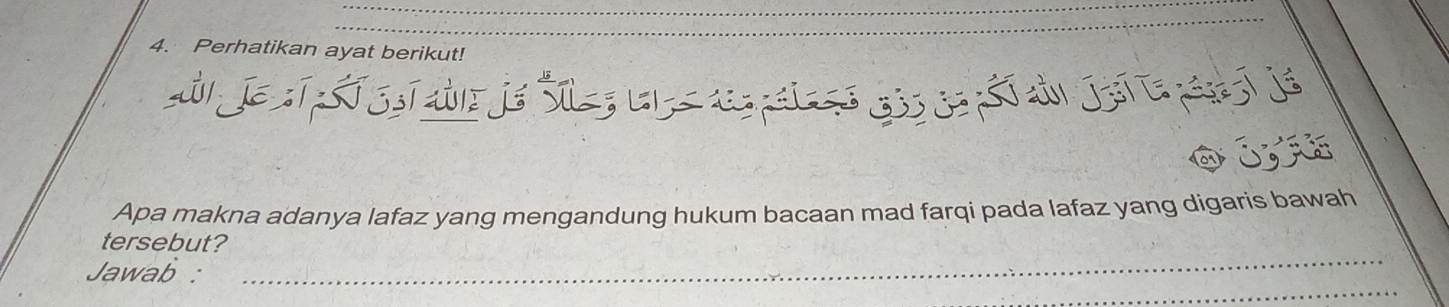 4. Perhatikan ayat berikut!
قُلْ اَرَءَيْتُمْ مَّآ اَنْزَلَ اللّٰهُ لَكُمْ مِّنْ رِّزْقٍ فَجَعَلْتُمْ مِّنْهُ حَرَامًا وَّحَلٰلًاۗ قُلْ ءٰۤاللّٰهُ اَذِنَ لَكُمْ اَمْ عَلَى اللّٰهِ
تَفْتَرُوْنَ ﴿٥٩﴾
Apa makna adanya lafaz yang mengandung hukum bacaan mad farqi pada lafaz yang digaris bawah
tersebut?
Jawab :